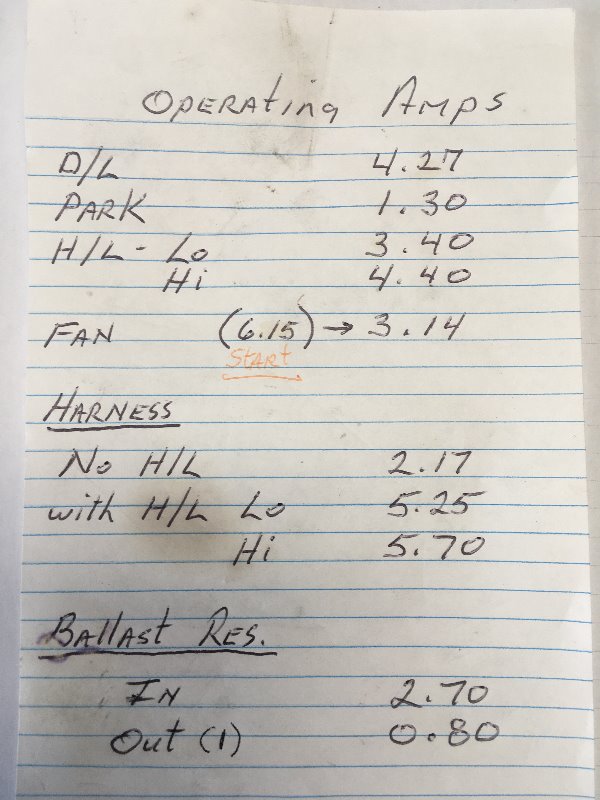 Operating Amps
D/L 4.27
Park 1.30
H/L - Lo 3.40
Hi 4.40
Fan (6.15) → 3.14
Start
Harness
No H/L 2.17
with H/L Lo 5.25
Hi 5.70
Ballast Res.
In 2.70
Out (1) 0.80